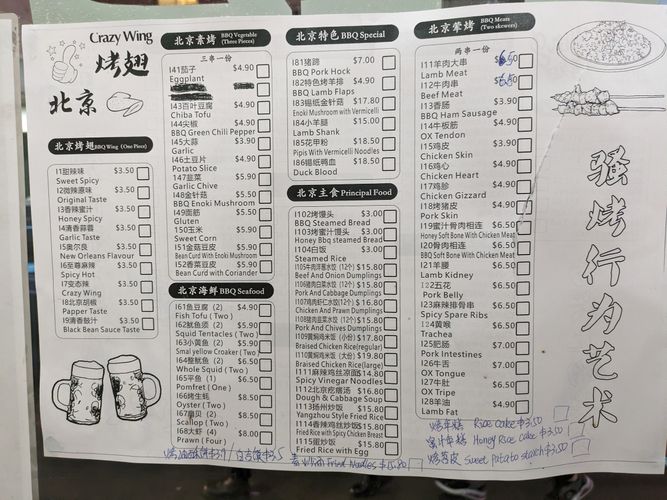 Crazy Wing
烤翅
北京
北京烤翅 BBQ Wing (One Piece)
I1甜辣味 $3.50
Sweet Spicy
I2微辣原味 $3.50
Original Taste
I3香辣蜜汁 $3.50
Honey Spicy
I4清香蒜蓉 $3.50
Garlic Taste
I5奥尔良 $3.50
New Orleans Flavour
I6至尊麻辣 $3.50
Spicy Hot
I7变态辣 $3.50
Crazy Wing
I8北京胡椒 $3.50
Papper Taste
I9清香鼓汁 $3.50
Black Bean Sauce Taste
北京素烤 BBQ Vegetable (Three Pieces)
三串一份
I41茄子 $4.90
Eggplant
I43百叶豆腐 $4.90
Chiba Tofu
I44尖椒 $4.90
BBQ Green Chili Pepper
I45大蒜 $3.90
Garlic
I46土豆片 $4.90
Potato Slice
I47韭菜 $5.90
Garlic Chive
I48金针菇 $5.50
BBQ Enoki Mushroom
I49面筋 $5.50
Gluten
I50玉米 $5.90
Sweet Corn
I51金菇豆皮 $5.90
Bean Curd with Enoki Mushroom
I52香菜豆皮 $5.90
Bean Curd with Coriander
北京海鲜 BBQ Seafood
I61鱼豆腐 (2) $4.90
Fish Tofu ( Two )
I62鱿鱼须 (2) $5.90
Squid Tentacles ( Two )
I63小黄鱼 (2) $5.90
Smal yellow Croaker ( Two )
I64整鱿鱼 (2) $6.50
Whole Squid ( Two )
I65平鱼 (1) $6.50
Pomfret ( One )
I66烤生蚝 $8.50
Oyster ( Two )
I67扇贝 (2) $8.50
Scallop ( Two )
I68大虾 (4) $8.00
Prawn ( Four )
北京特色 BBQ Special
I81猪蹄 $7.00
BBQ Pork Hock
I82特色烤羊排 $4.90
BBQ Lamb Flaps
I83锡纸金针菇 $17.80
Enoki Mushroom with Vermicelli
I84小羊腿 $15.00
Lamb Shank
I85花甲粉 $18.50
Pipis with Vermicelli Noodles
I86锡纸鸭血 $18.50
Duck Blood
北京主食 Principal Food
I102烤馒头 $3.00
BBQ Steamed Bread
I103烤蜜汁馒头 $3.00
Honey Bbq steamed Bread
I104白饭 $3.00
Steamed Rice
I105牛肉洋葱水饺 (12个) $15.80
Beef And Onion Dumplings
I106猪肉白菜水饺 (12个) $15.80
Pork And Cabbage Dumplings
I107鸡肉虾仁水饺 (12个) $16.80
Chicken And Prawn Dumplings
I108猪肉韭菜水饺 (12个) $15.80
Pork And Chives Dumplings
I109黄焖鸡米饭 (小份) $17.80
Braised Chicken Rice(regular)
I110黄焖鸡米饭 (大份) $19.80
Braised Chicken Rice(large)
I111麻辣鸡丝凉面 $14.80
Spicy Vinegar Noodles
I112北京疙瘩汤 $16.80
Dough & Cabbage Soup
I113扬州炒饭 $15.80
Yangzhou Style Fried Rice
I114香辣鸡丝炒饭 $15.80
Fried Rice with Spicy Chicken Breast
I115蛋炒饭 $15.80
Fried Rice with Egg
北京荤烤 BBQ Meats (Two skewers)
两串一份
I11羊肉大串 6.50
Lamb Meat
I12牛肉串
Beef Meat
I13香肠 $3.90
BBQ Ham Sausage
I14牛板筋 $4.90
OX Tendon
I15鸡皮 $3.90
Chicken Skin
I16鸡心 $4.90
Chicken Heart
I17鸡胗 $4.90
Chicken Gizzard
I18烤猪皮 $4.90
Pork Skin
I19蜜汁骨肉相连 $6.50
Honey Soft Bone With Chicken Meat
I20骨肉相连 $6.50
BBQ Soft Bone With Chicken Meat
I21羊腰 $6.50
Lamb Kidney
I22五花 $5.90
Pork Belly
I23麻辣排骨串 $6.50
Spicy Spare Ribs
I24黄喉 $6.50
Trachea
I25肥肠 $7.00
Pork Intestines
I26牛舌 $7.00
OX Tongue
I27牛肚 $6.50
OX Tripe
I28羊油 $4.90
Lamb Fat
骚烤行为艺术
烤年糕 Rice cake $3.50
蜜汁年糕 Honey Rice cake $3.50
烤苕皮 Sweet Patato starch $3.50
Fried Noodles $15.80